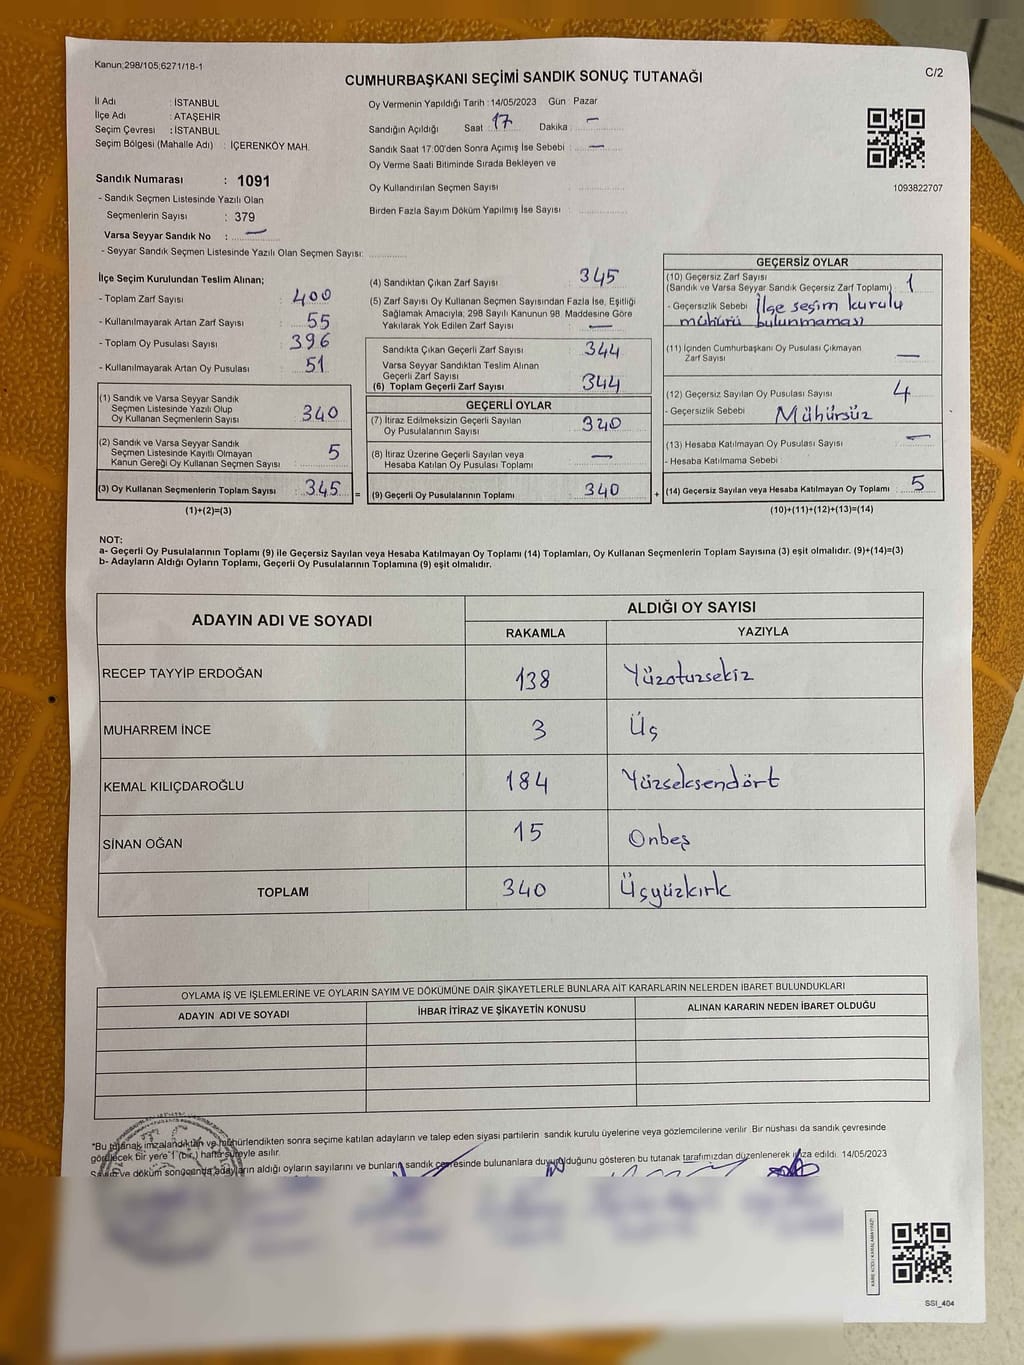 Kanun;298/105;6271/18-1
C/2
CUMHURBAŞKANI SEÇİMİ SANDIK SONUÇ TUTANAĞI
İl Adı : İSTANBUL
İlçe Adı : ATAŞEHİR
Seçim Çevresi : İSTANBUL
Seçim Bölgesi (Mahalle Adı) : İÇERENKÖY MAH.
Sandık Numarası : 1091
- Sandık Seçmen Listesinde Yazılı Olan
Seçmenlerin Sayısı : 379
Varsa Seyyar Sandık No : —
- Seyyar Sandık Seçmen Listesinde Yazılı Olan Seçmen Sayısı:
Oy Vermenin Yapıldığı Tarih : 14/05/2023 Gün : Pazar
Sandığın Açıldığı Saat : 17 Dakika : —
Sandık Saat 17:00'den Sonra Açımış İse Sebebi : —
Oy Verme Saati Bitiminde Sırada Bekleyen ve
Oy Kullandırılan Seçmen Sayısı :
Birden Fazla Sayım Döküm Yapılmış İse Sayısı :
1093822707
İlçe Seçim Kurulundan Teslim Alınan;
- Toplam Zarf Sayısı : 400
- Kullanılmayarak Artan Zarf Sayısı : 55
- Toplam Oy Pusulası Sayısı : 396
- Kullanılmayarak Artan Oy Pusulası : 51
(1) Sandık ve Varsa Seyyar Sandık
Seçmen Listesinde Yazılı Olup
Oy Kullanan Seçmenlerin Sayısı : 340
(2) Sandık ve Varsa Seyyar Sandık
Seçmen Listesinde Kayıtlı Olmayan
Kanun Gereği Oy Kullanan Seçmen Sayısı : 5
(3) Oy Kullanan Seçmenlerin Toplam Sayısı : 345 =
(1)+(2)=(3)
(4) Sandıktan Çıkan Zarf Sayısı : 345
(5) Zarf Sayısı Oy Kullanan Seçmen Sayısından Fazla İse, Eşitliği
Sağlamak Amacıyla, 298 Sayılı Kanunun 98. Maddesine Göre
Yakılarak Yok Edilen Zarf Sayısı : —
Sandıkta Çıkan Geçerli Zarf Sayısı : 344
Varsa Seyyar Sandıktan Teslim Alınan
Geçerli Zarf Sayısı :
(6) Toplam Geçerli Zarf Sayısı : 344
GEÇERLİ OYLAR
(7) İtiraz Edilmeksizin Geçerli Sayılan
Oy Pusulalarının Sayısı : 340
(8) İtiraz Üzerine Geçerli Sayılan veya
Hesaba Katılan Oy Pusulası Toplamı : —
(9) Geçerli Oy Pusulalarının Toplamı : 340 +
GEÇERSİZ OYLAR
(10) Geçersiz Zarf Sayısı
(Sandık ve Varsa Seyyar Sandık Geçersiz Zarf Toplamı) : 1
- Geçersizlik Sebebi : İlçe seçim kurulu
mühürü bulunmaması
(11) İçinden Cumhurbaşkanı Oy Pusulası Çıkmayan
Zarf Sayısı : —
(12) Geçersiz Sayılan Oy Pusulası Sayısı : 4
- Geçersizlik Sebebi : Mühürsüz
(13) Hesaba Katılmayan Oy Pusulası Sayısı : —
- Hesaba Katılmama Sebebi :
(14) Geçersiz Sayılan veya Hesaba Katılmayan Oy Toplamı : 5
(10)+(11)+(12)+(13)=(14)
NOT:
a- Geçerli Oy Pusulalarının Toplamı (9) ile Geçersiz Sayılan veya Hesaba Katılmayan Oy Toplamı (14) Toplamları, Oy Kullanan Seçmenlerin Toplam Sayısına (3) eşit olmalıdır. (9)+(14)=(3)
b- Adayların Aldığı Oyların Toplamı, Geçerli Oy Pusulalarının Toplamına (9) eşit olmalıdır.
ADAYIN ADI VE SOYADI ALDIĞI OY SAYISI
RAKAMLA YAZIYLA
RECEP TAYYİP ERDOĞAN 138 Yüzotuzsekiz
MUHARREM İNCE 3 Üç
KEMAL KILIÇDAROĞLU 184 Yüzseksendört
SİNAN OĞAN 15 Onbeş
TOPLAM 340 Üçyüzkırk
OYLAMA İŞ VE İŞLEMLERİNE VE OYLARIN SAYIM VE DÖKÜMÜNE DAİR ŞİKAYETLERLE BUNLARA AİT KARARLARIN NELERDEN İBARET BULUNDUKLARI
ADAYIN ADI VE SOYADI İHBAR İTİRAZ VE ŞİKAYETİN KONUSU ALINAN KARARIN NEDEN İBARET OLDUĞU
*Bu tutanak imzalandıktan ve mühürlendikten sonra seçime katılan adayların ve talep eden siyasi partilerin sandık kurulu üyelerine veya gözlemcilerine verilir. Bir nüshası da sandık çevresinde
görülecek bir yere 1 (bir) hafta süreyle asılır.
Sayım ve döküm sonucunda adayların aldığı oyların sayılarını ve bunların sandık çevresinde bulunanlara duyurulduğunu gösteren bu tutanak tarafımızdan düzenlenerek imza edildi. 14/05/2023
SSI_404